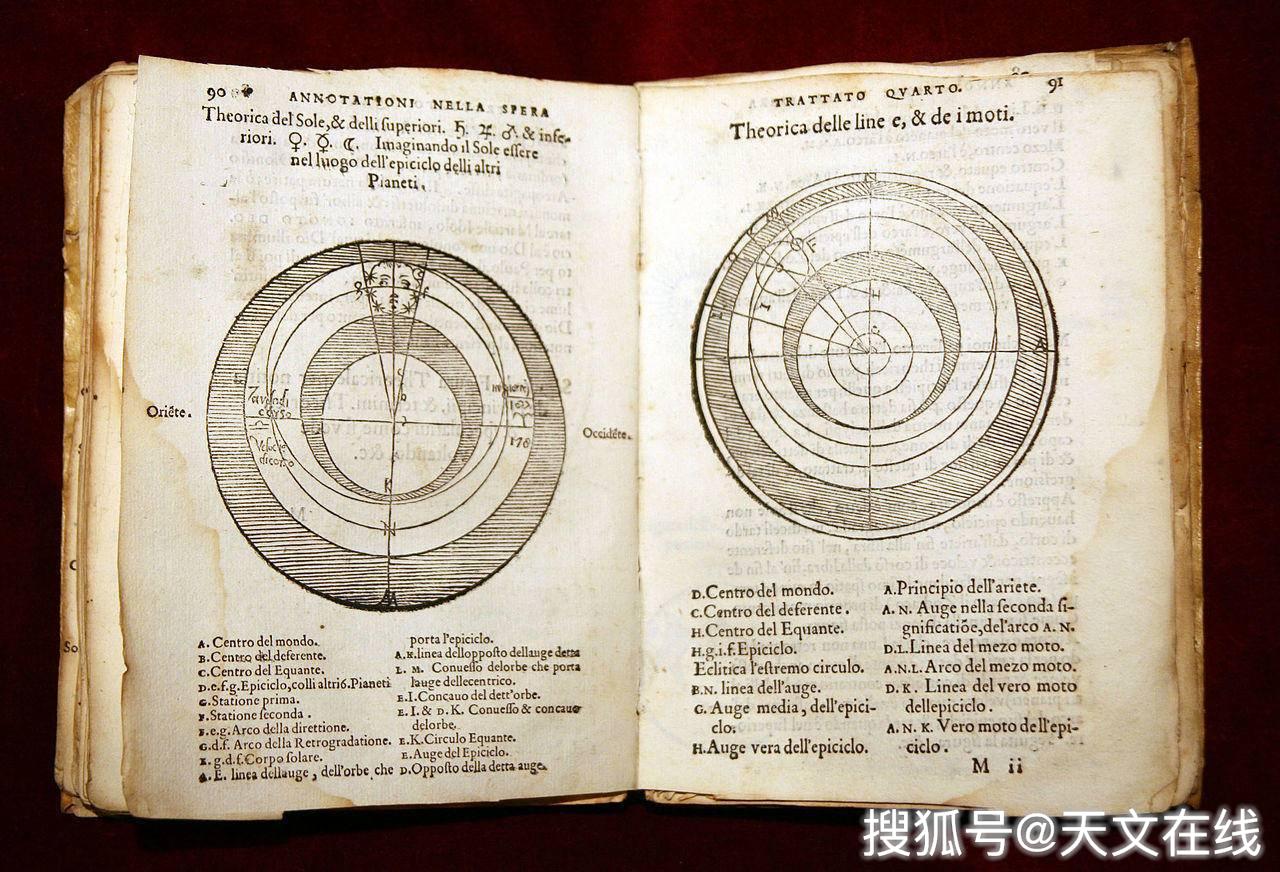 90
ANNOTATIONI NELLA SPERA
Theorica del Sole, & delli superiori. ♄. ♃. ♂ & infe-
riori. ♀. ☿. ☾. Imaginando il Sole essere
nel luogo dell'epiciclo delli altri
Pianeti.
Oriēte.
Occidēte.
A. Centro del mondo.
B. Centro del deferente.
C. Centro del Equante.
D.e.f.g. Epiciclo, colli altri 6. Pianeti
G. Statione prima.
F. Statione seconda.
E.e.g. Arco della direttione.
G.d.f. Arco della Retrogradatione.
E. g.d.f. Corpo solare.
A.E. linea dellauge, dell'orbe che
porta l'epiciclo.
A.K. linea dellopposto dellauge detta
L. M. Conuesso delorbe che porta
lauge delleccentrico.
E.I. Concauo del dett'orbe.
E.I. & D.K. Conuesso & concauo
delorbe.
E.K. Circulo Equante.
E. Auge del Epiciclo.
D. Opposto della detta auge.
TRATTATO QVARTO.
91
Theorica delle line e, & de i moti.
D. Centro del mondo.
C. Centro del deferente.
H. Centro del Equante.
H.g.i.f. Epiciclo.
Eclitica l'estremo circulo.
B.N. linea dell'auge.
G. Auge media, dell'epici-
clo.
H. Auge vera dell'epiciclo.
A. Principio dell'ariete.
A. N. Auge nella seconda si-
gnificatiōe, del'arco A. N.
D.L. Linea del mezo moto.
A.N.L. Arco del mezo moto.
D. K. Linea del vero moto
dellepiciclo.
A. N. K. Vero moto dell'epi-
ciclo.
M ii
搜狐号@天文在线